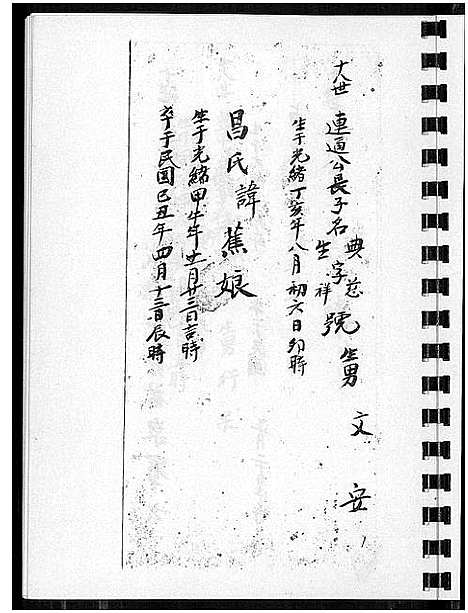 十八世 連通公長子名典慈 生字祥號 生男 文安
生于光緒丁亥年八月初六日卯時
昌氏諱蕉娘
生于光緒甲午年十一月廿三日吉時
卒于民国己丑年四月十三日辰時